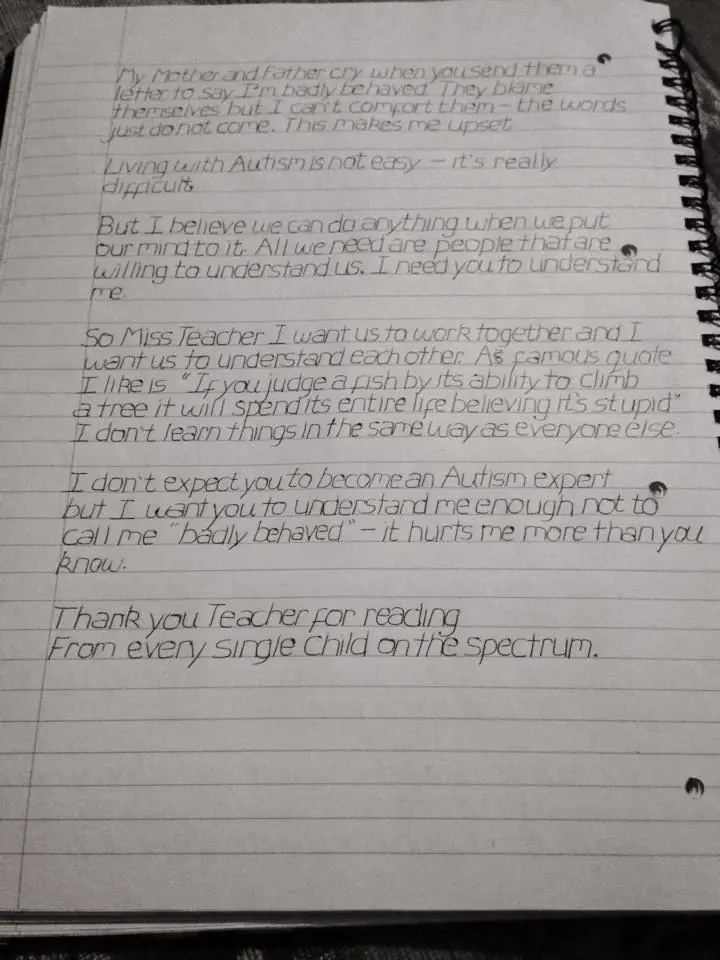 My Mother and Father cry when you send them a
letter to say I'm badly behaved. They blame
themselves but I can't comfort them - the words
just do not come. This makes me upset
Living with Autism is not easy - it's really
difficult.
But I believe we can do anything when we put
our mind to it. All we need are people that are
willing to understand us. I need you to understand
me.
So Miss Teacher I want us to work together and I
want us to understand each other. As famous quote
I like is "If you judge a fish by its ability to climb
a tree it will spend its entire life believing it's stupid"
I don't learn things in the same way as everyone else.
I don't expect you to become an Autism expert
but I want you to understand me enough not to
call me "badly behaved" - it hurts me more than you
know.
Thank you Teacher for reading
From every single Child on the spectrum.